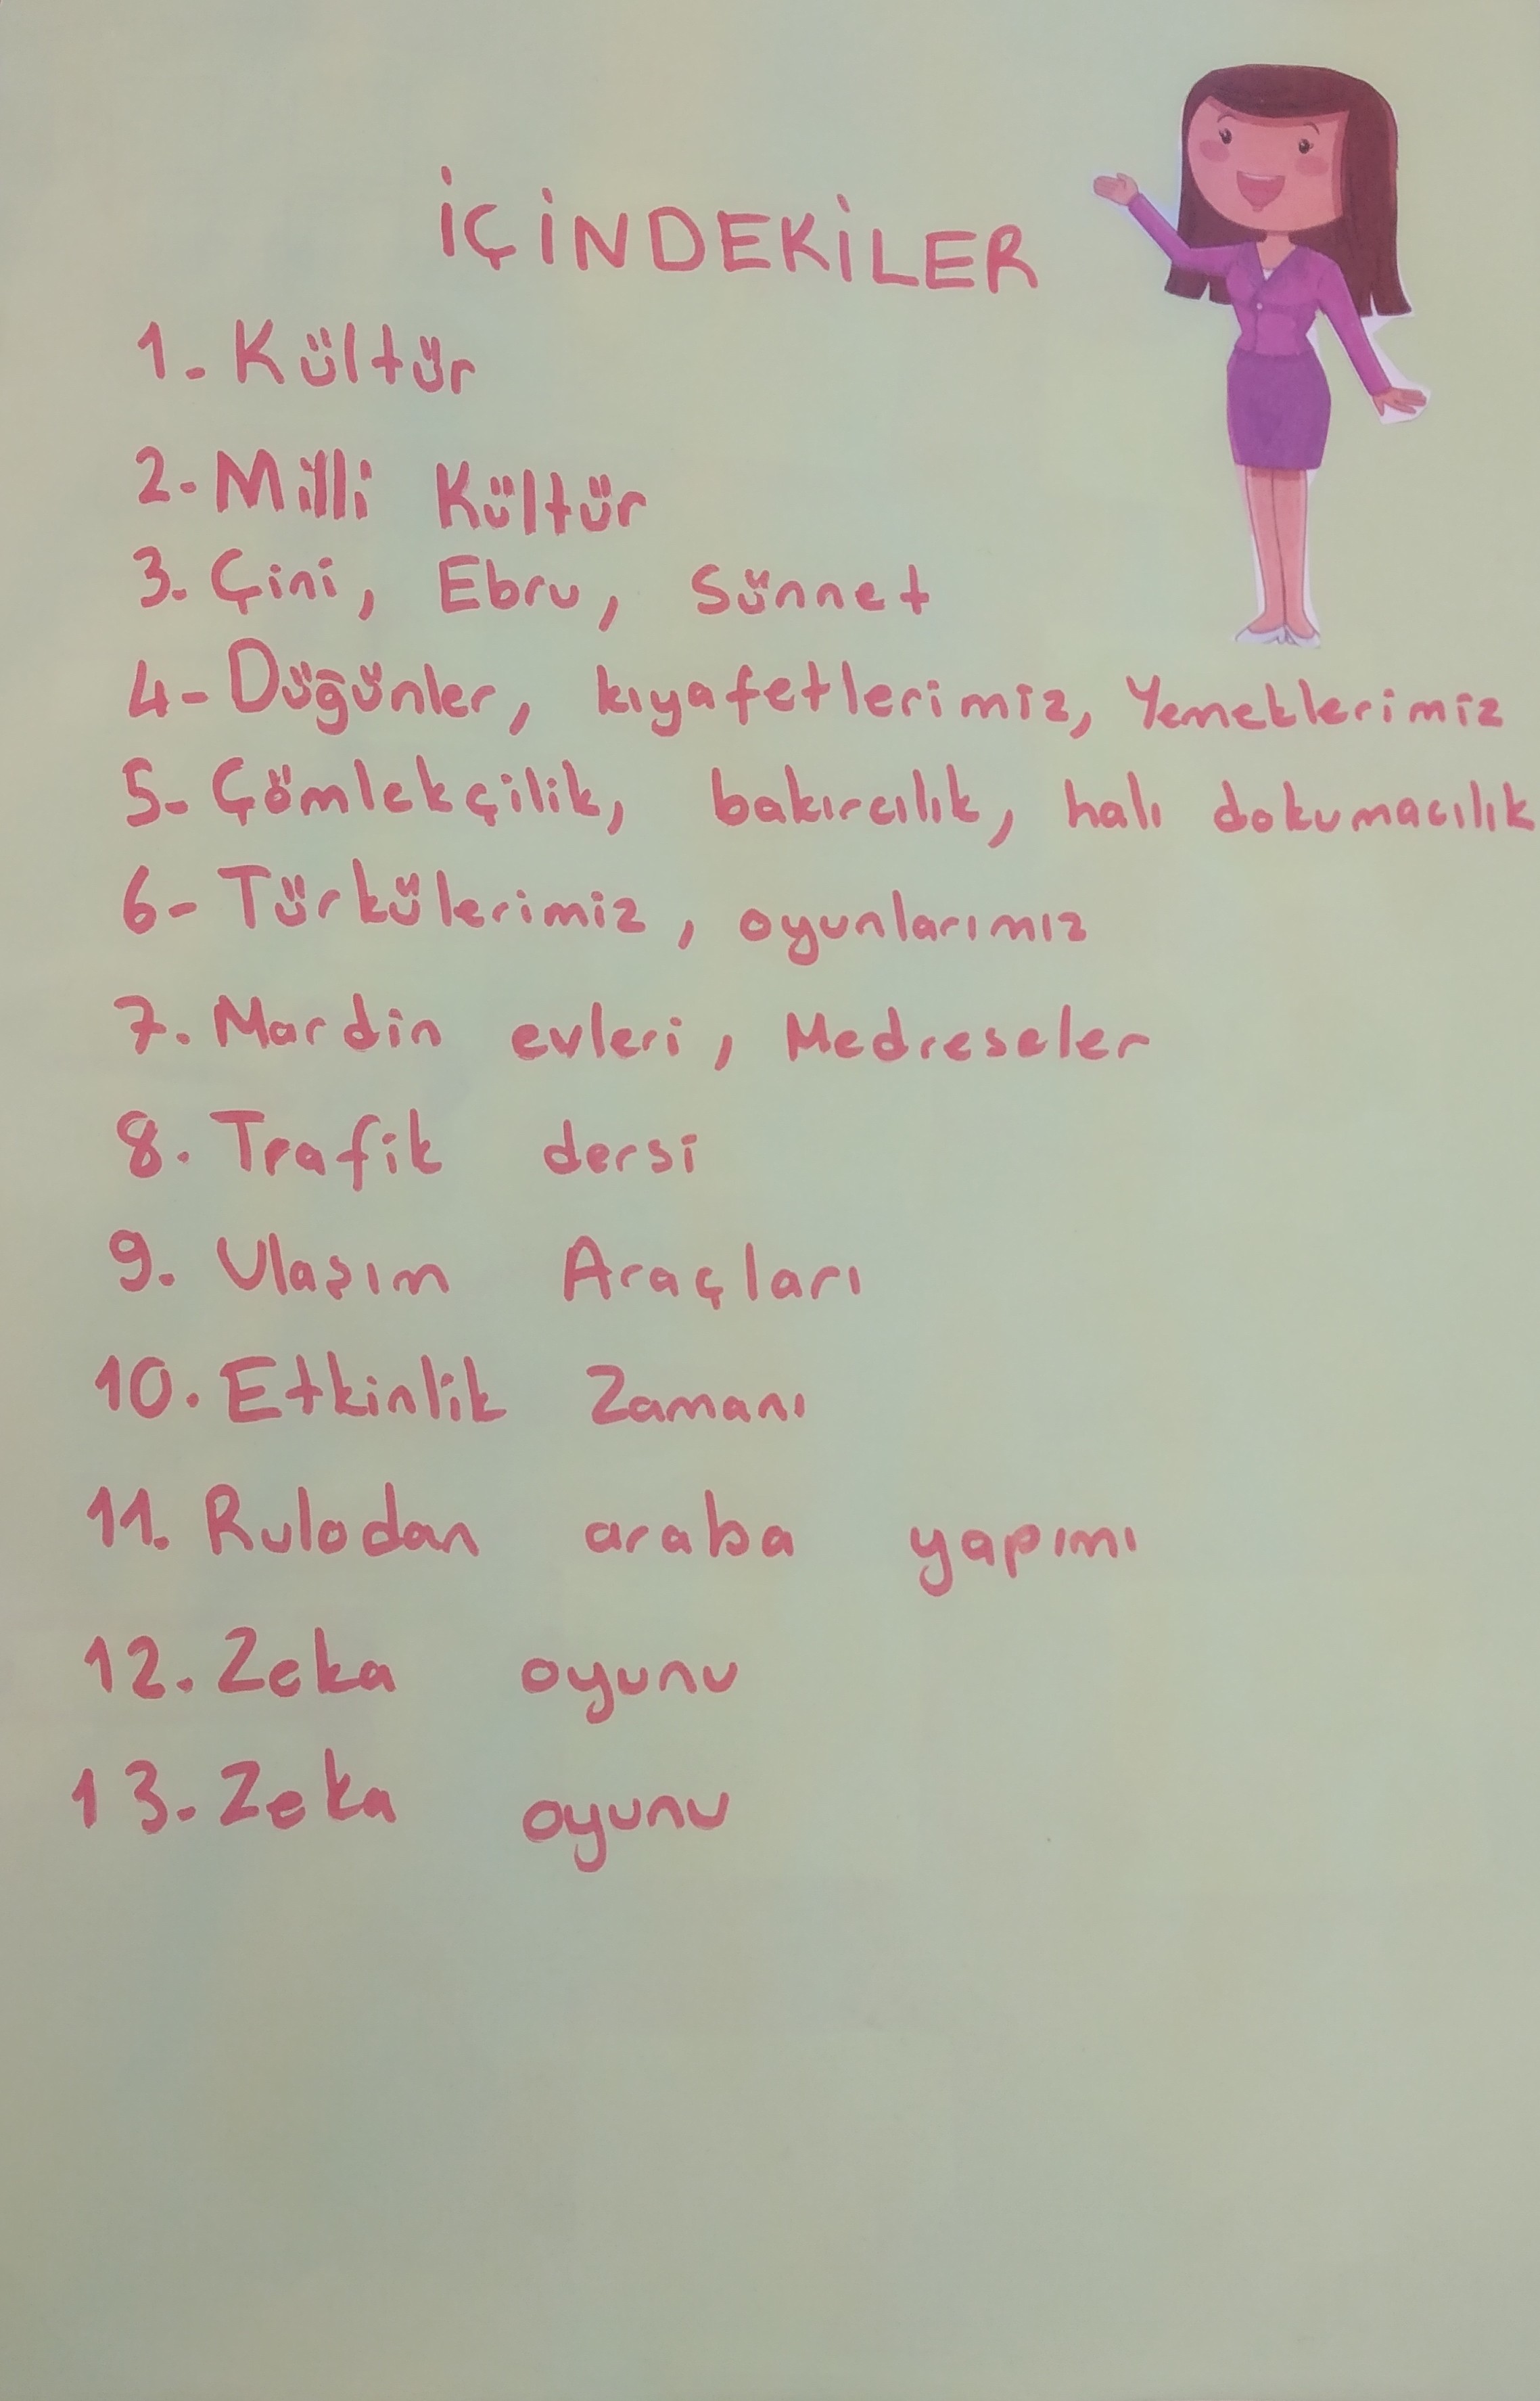 İÇİNDEKİLER
1. Kültür
2. Milli Kültür
3. Çini, Ebru, Sünnet
4- Düğünler, kıyafetlerimiz, Yemeklerimiz
5- Çömlekçilik, bakırcılık, halı dokumacılık
6- Türkülerimiz, oyunlarımız
7. Mardin evleri, Medreseler
8. Trafik dersi
9. Ulaşım Araçları
10. Etkinlik Zamanı
11. Rulodan araba yapımı
12. Zeka oyunu
13. Zeka oyunu